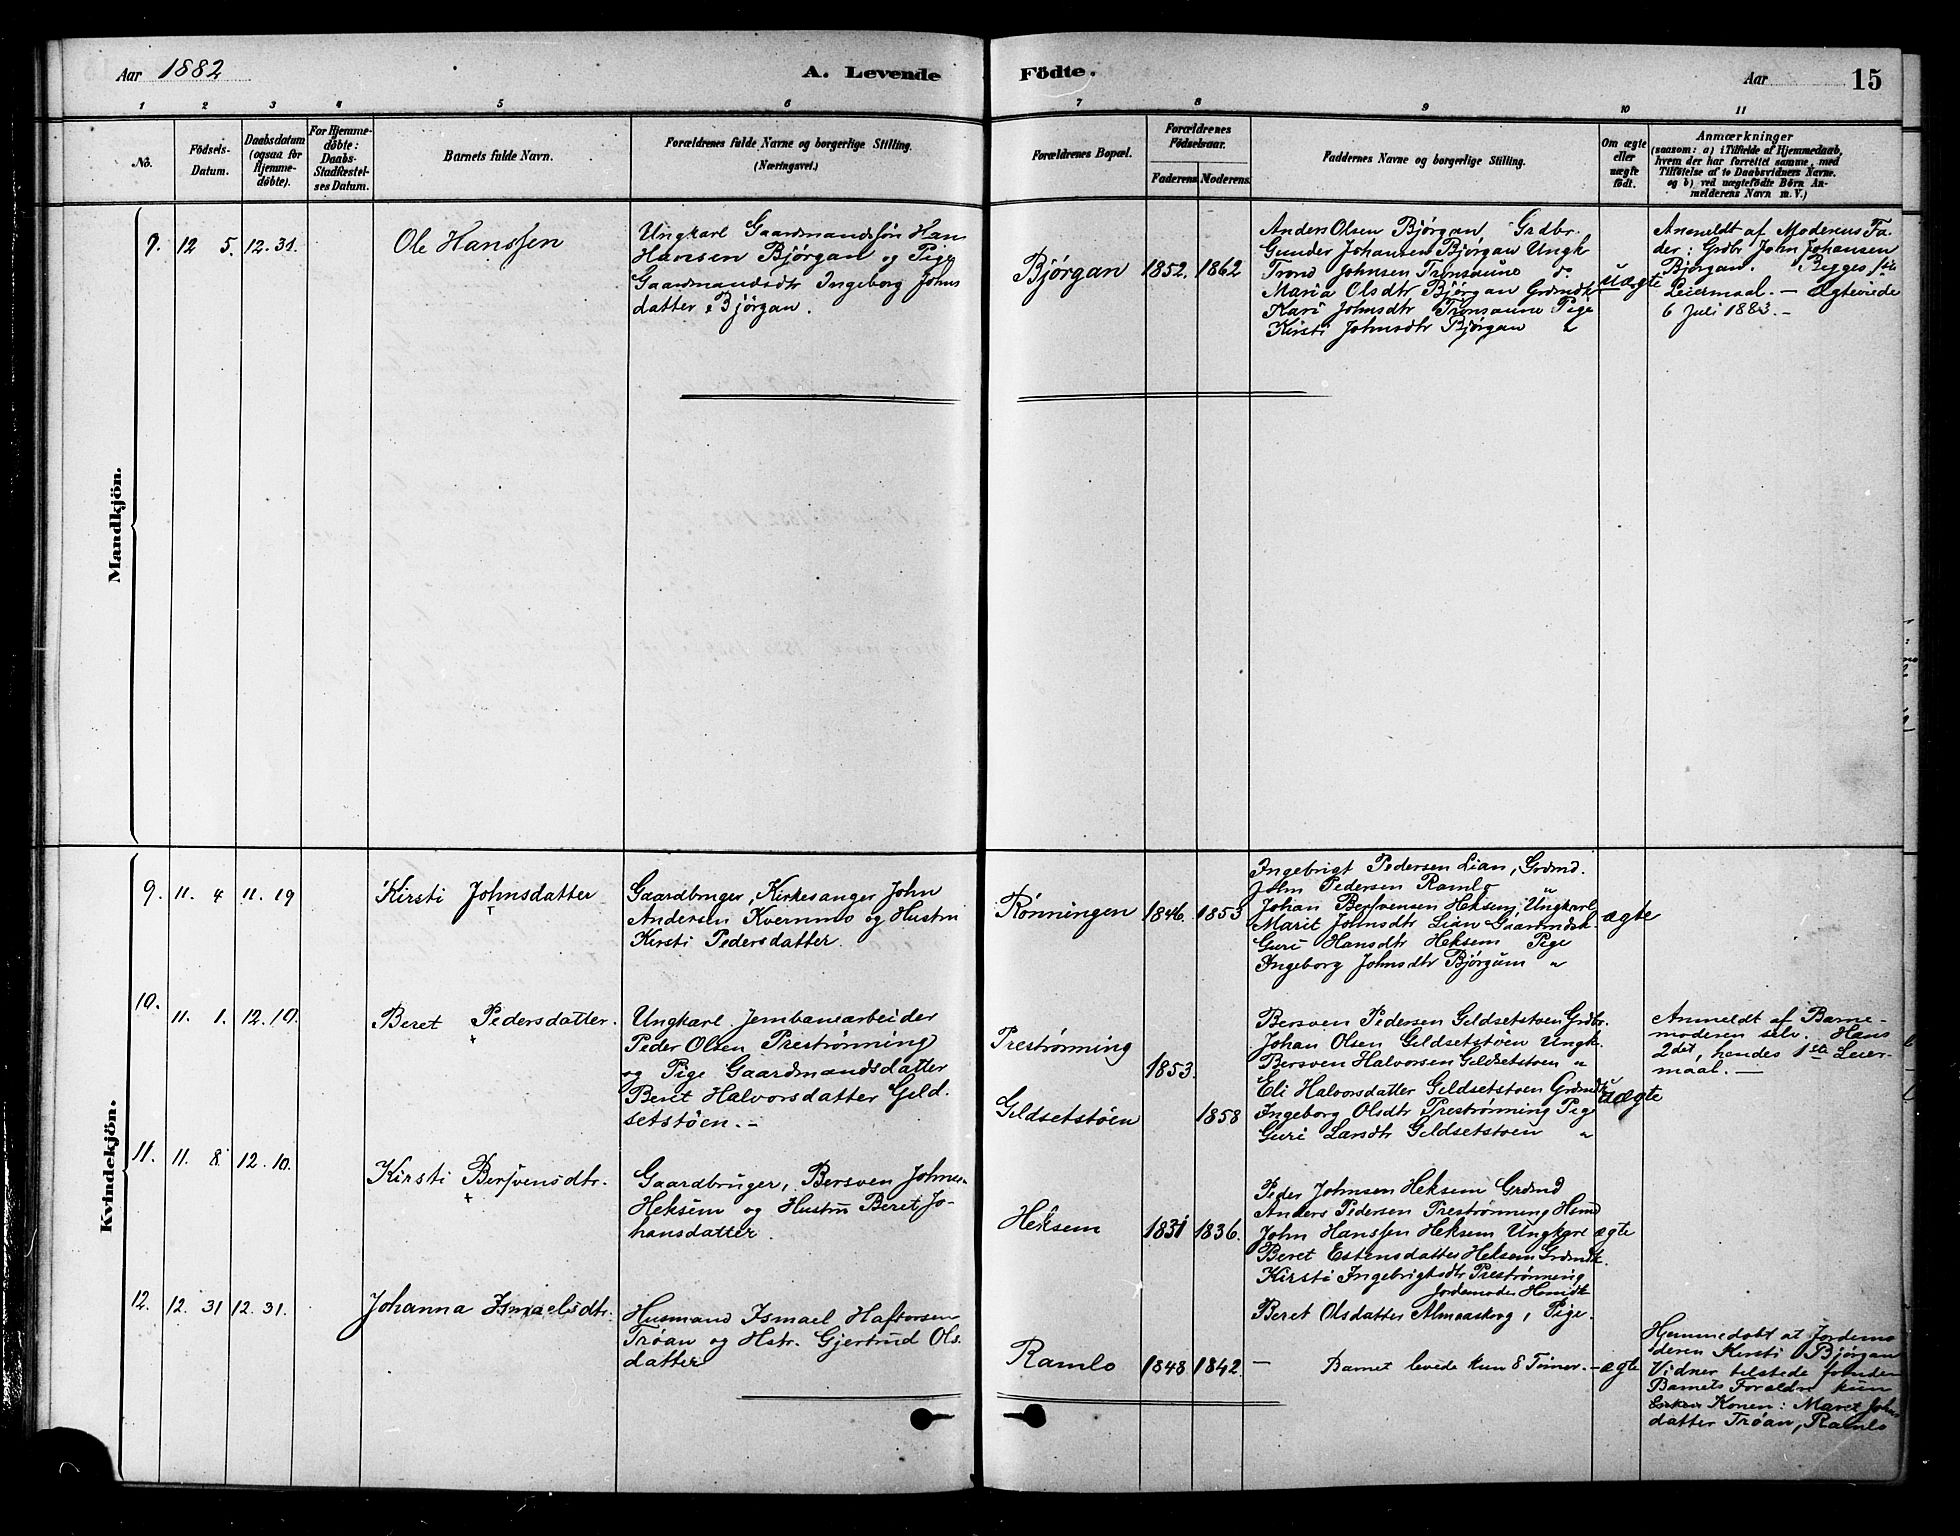 Aar 1882
A. Levende
Födte.
Aar
15
1 2 3 4 5 6 7 8 9 10 11
No.
Födsels-
Datum.
Daabsdatum
(ogsaa for
Hjemme-
döbte).
For Hjemme-
döbte:
Daabs-
Stadfæstel-
ses Datum.
Barnets fulde Navn.
Forældrenes fulde Navne og borgerlige Stilling.
(Næringsvei.)
Forældrenes Bopæl.
Forældrenes
Födselsaar.
Faderens Moderens
Faddernes Navne og borgerlige Stilling.
Om ægte
eller
uægte
födt.
Anmærkninger
(saasom: a) i Tilfælde af Hjemmedaab,
hvem der har forrettet samme, med
Tilföielse af to Daabsvidners Navne.
og b) ved uægtefödte Börn An-
melderens Navn m. V.)
Mandkjön.
9. 12 5. 12. 31.
Ole Hanssen
Ungkarl Gaardmandssøn Hans
Hansen Bjørgan og Pige
Gaardmandsdtr Ingeborg Johns
datter, Bjørgan.
Bjørgan 1852. 1862
Anders Olsen Bjørgan Grdbr.
Gunder Johansen Bjørgan Ungk
Trond Johnsen Tronsaune d.
Maria Olsdtr Bjørgan Grdmdk
Kari Johnsdtr Tronsaune Pige
Kirsti Johnsdtr Bjørgan "
Uægte
Anmeldt af Moderens Fa-
der: Grdbr John Johansen
Bjørgan. Begges 1ste
Leiermaal. – Ægteviede
6 Juli 1883. –
Kvindekjön.
9. 11. 4 11. 19
Kirsti Johnsdatter
Gaardbruger, Kirkesanger John
Andersen Kvernmo og Hustru
Kirsti Pedersdatter.
Rønningen 1846. 1853
Ingebrigt Pedersen Lian, Grdmd.
John Pedersen Ramlo "
Johan Bersvensen Heksem, Ungkarl
Marit Johnsdtr Lian Gaardmdsk.
Guri Hansdtr Heksem Pige
Ingeborg Johnsdtr Bjørgum "
ægte
10. 11. 1. 12. 10.
Beret Pedersdatter.
Ungkarl Jernbanearbeider
Peder Olsen Prestrønning
og Pige Gaardmandsdatter
Berit Halvorsdatter Geld-
setstøen. –
Prestrønning 1853.
Geldsetstøen 1858
Bersven Pedersen Geldsetstøen Grdbr.
Johan Olsen Geldsetstøen Ungk.
Bersven Halvorsen Geldsetstøen "
Eli Halvorsdatter Geldsetstøen Grdmdk
Ingeborg Olsdtr Prestrønning Pige
Guri Larsdtr Geldsetstøen "
Uægte
Anmeldt af Barne-
moderen selv. Hans
2det, hendes 1ste Leier-
maal. –
11. 11. 8. 12. 10.
Kirsti Bersvensdtr.
Gaardbruger, Bersven Johns-
Heksem og Hustru Beret Jo-
hansdatter.
Heksem 1831 1836.
Peder Johnsen Heksem Grdmd
Anders Pedersen Prestrønning Hmd
John Hanssen Heksem Ungkarl
Beret Estensdatter Heksem Grdmdk.
Kirsti Ingebrigtsdtr Prestrønning
Jordemoder Hmdk
Beret Olsdatter Almaaskrog, Pige.
ægte
12. 12. 31 12. 31.
Johanna Ismaelsdtr.
Husmand Ismael Haftorsen
Trøan og Hstr. Gjertrud Ols-
datter
Ramlo 1848 1842.
– Barnet levede kun 8 Timer. –
ægte
Hjemmedøbt af Jordemo
deren Kirsti Bjørgan
Vidner tilstede foruden
Barnets Forældre kun
Konen: Maret Johns
datter Trøan, Ramlo